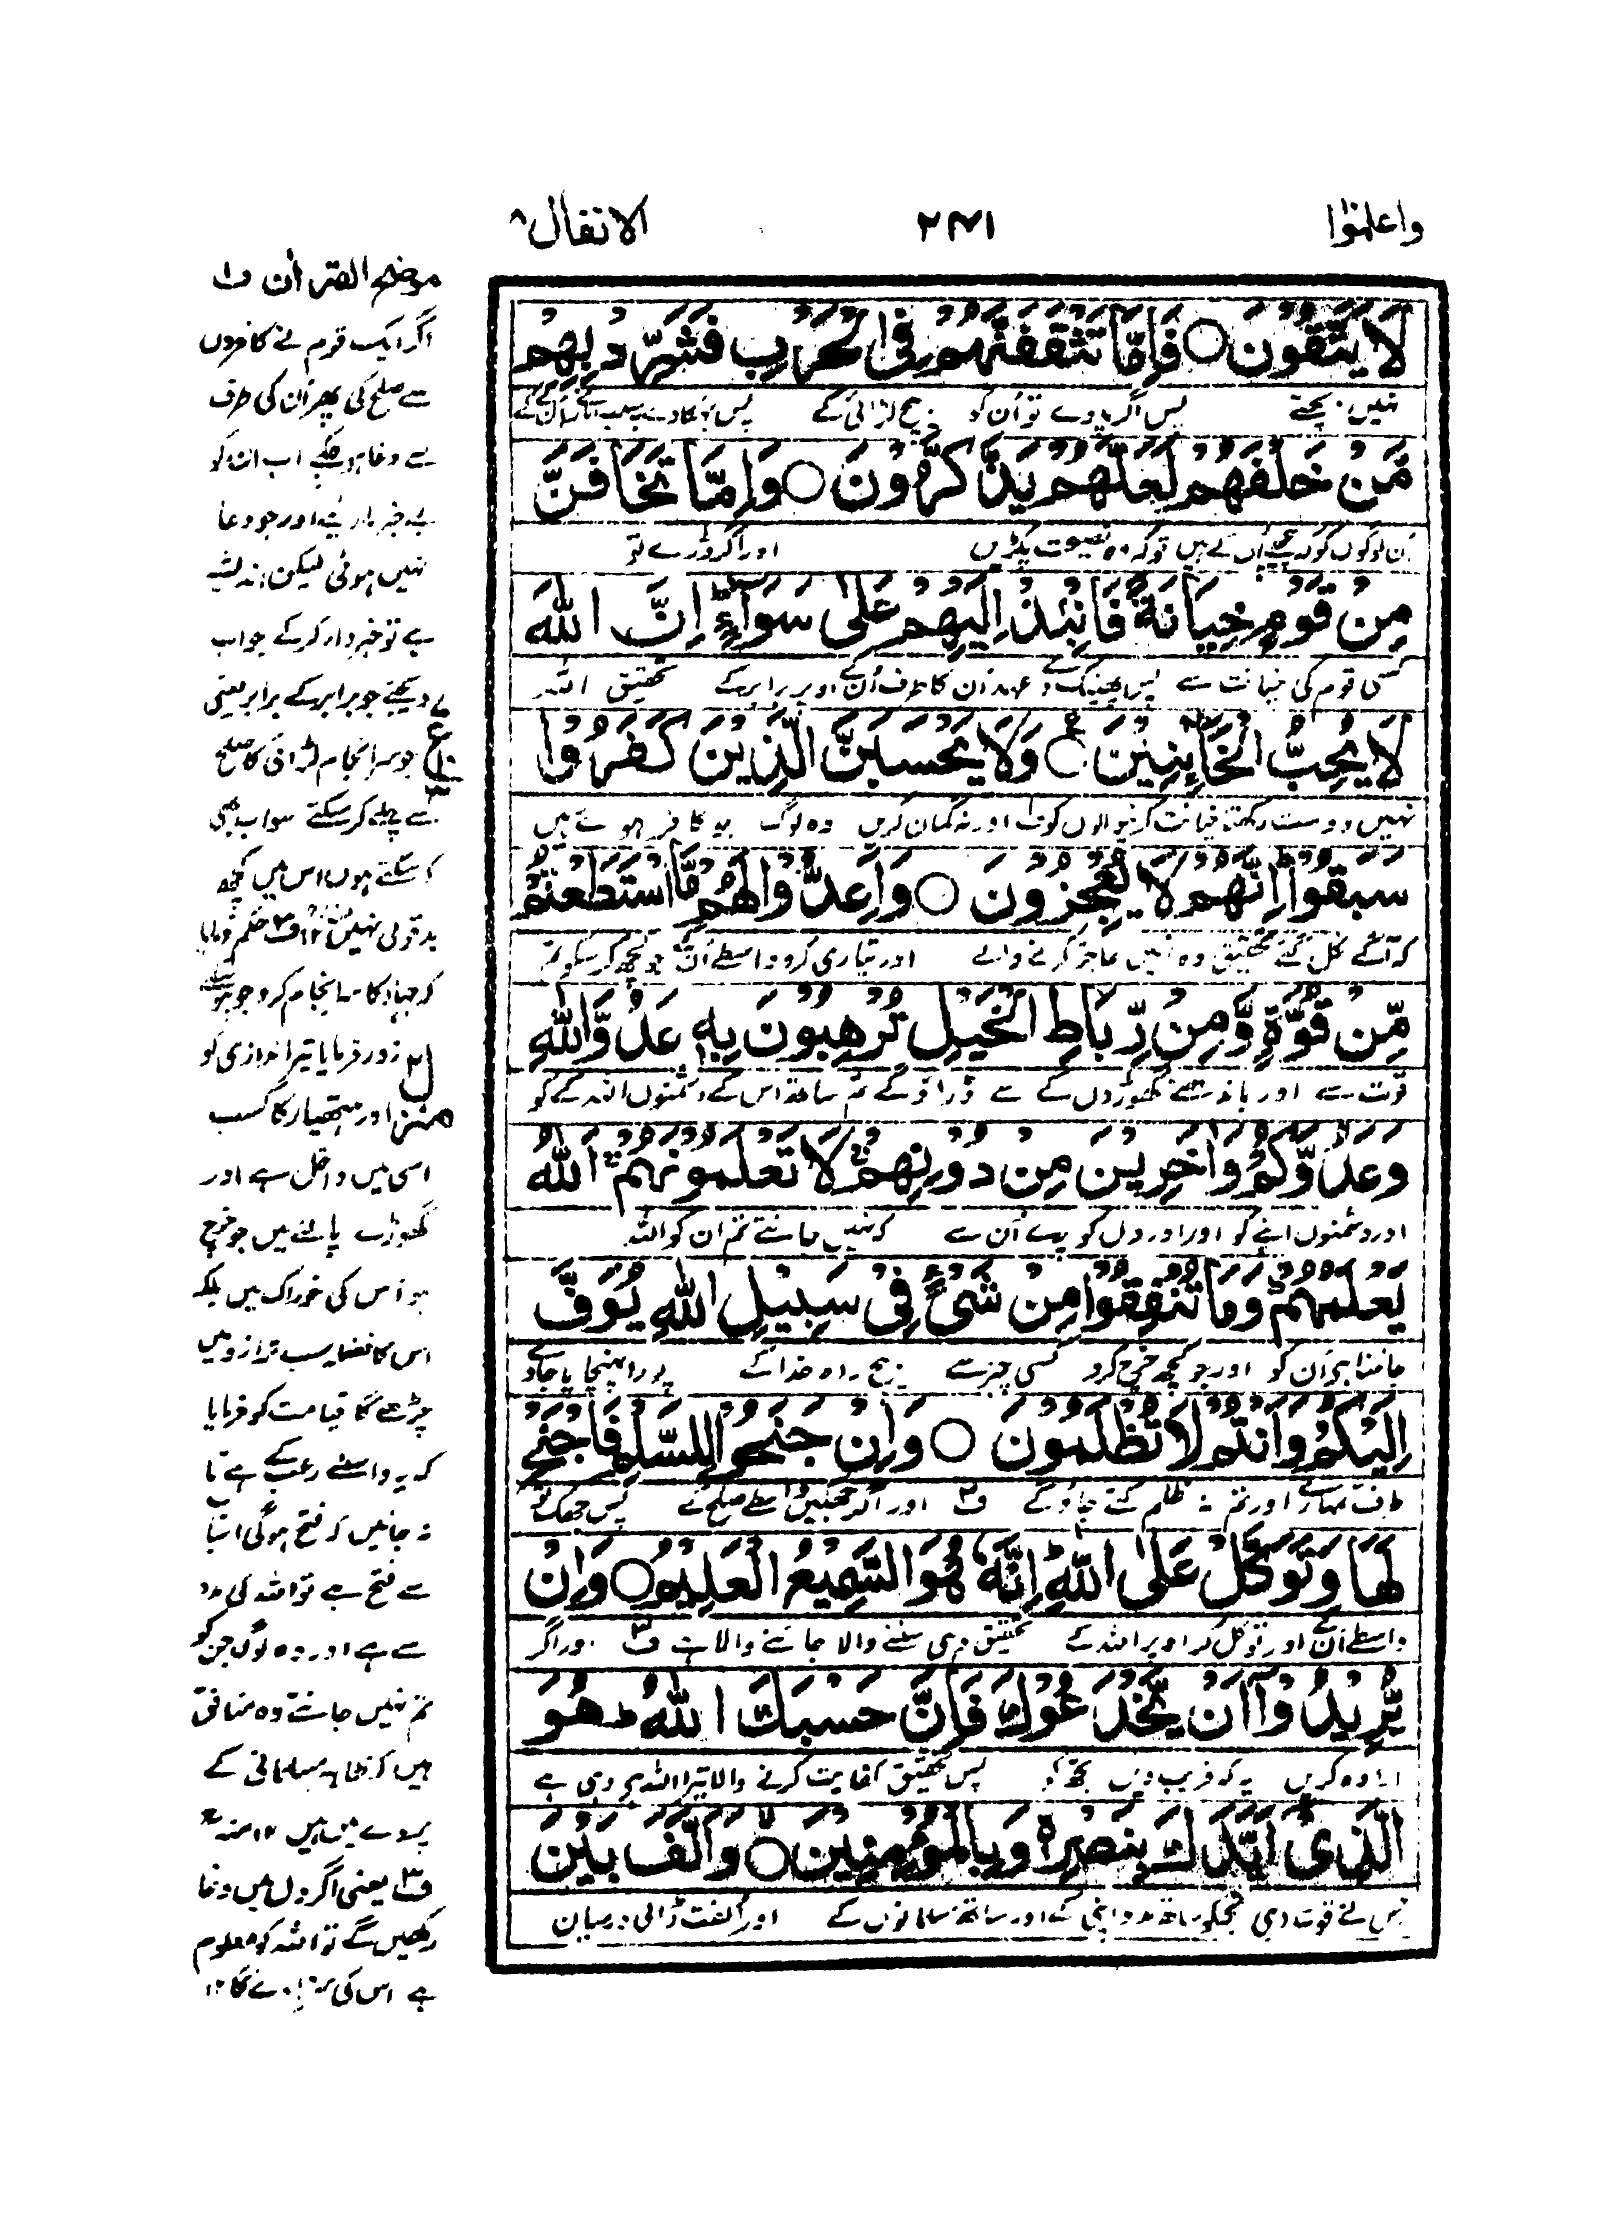 واعلموا
۲۴۱
الانفال ۸
لَا يَتَّقُوْنَ ○ فَاِمَّا تَثْقَفَنَّهُمْ فِى الْحَرْبِ فَشَرِّدْ بِهِمْ
نہیں بچتے پس اگر پاوے تو اُن کو بیچ لڑائی کے
مَّنْ خَلْفَهُمْ لَعَلَّهُمْ يَذَّكَّرُوْنَ ○ وَاِمَّا تَخَافَنَّ
اُن لوگوں کو کہ پیچھے اُن کے ہیں توکہ وہ نصیحت پکڑیں اور اگر ڈرے تو
مِنْ قَوْمٍ خِيَانَةً فَانْۢبِذْ اِلَيْهِمْ عَلٰى سَوَآءٍ ؕ اِنَّ اللّٰهَ
کسی قوم کی خیانت سے پس پھینک دے عہد اُن کا طرف اُن کے اوپر برابر کے تحقیق اللہ
لَا يُحِبُّ الْخَآئِنِيْنَ ○ وَلَا يَحْسَبَنَّ الَّذِيْنَ كَفَرُوْا
نہیں دوست رکھتا خیانت کرنیوالوں کو ف اور نہ گمان کریں وہ لوگ کہ کافر ہوئے ہیں
سَبَقُوْا ؕ اِنَّهُمْ لَا يُعْجِزُوْنَ ○ وَاَعِدُّوْا لَهُمْ مَّا اسْتَطَعْتُمْ
کہ آگے نکل گئے تحقیق وہ نہیں عاجز کرنے والے اور تیاری کرو واسطے اُن کے جو کچھ کر سکو تم
مِّنْ قُوَّةٍ وَّمِنْ رِّبَاطِ الْخَيْلِ تُرْهِبُوْنَ بِهٖ عَدُوَّ اللّٰهِ
قوت سے اور باندھنے گھوڑوں کے سے ڈراؤگے تم ساتھ اس کے دشمنوں اللہ کے کو
وَعَدُوَّكُمْ وَاٰخَرِيْنَ مِنْ دُوْنِهِمْ ۚ لَا تَعْلَمُوْنَهُمْ ۚ اَللّٰهُ
اور دشمنوں اپنے کو اور اوروں کو پرے اُن سے کہ نہیں جانتے تم ان کو اللہ
يَعْلَمُهُمْ ؕ وَمَا تُنْفِقُوْا مِنْ شَىْءٍ فِىْ سَبِيْلِ اللّٰهِ يُوَفَّ
جانتا ہے اُن کو اور جو کچھ خرچ کرو کسی چیز سے بیچ راہ خدا کے پورا پہنچایا جاوے
اِلَيْكُمْ وَاَنْتُمْ لَا تُظْلَمُوْنَ ○ وَاِنْ جَنَحُوْا لِلسَّلْمِ فَاجْنَحْ
طرف تمہارے اور تم نہ ظلم کئے جاؤگے ف۲ اور اگر جھکیں واسطے صلح کے پس جھک تو
لَهَا وَتَوَكَّلْ عَلَى اللّٰهِ ؕ اِنَّهٗ هُوَ السَّمِيْعُ الْعَلِيْمُ ○ وَاِنْ
واسطے اُن کے اور توکل کر اوپر اللہ کے تحقیق وہی سننے والا جاننے والا ہے ف۳ اور اگر
يُّرِيْدُوْۤا اَنْ يَّخْدَعُوْكَ فَاِنَّ حَسْبَكَ اللّٰهُ ؕ هُوَ
ارادہ کریں یہ کہ فریب دیں تجھ کو پس تحقیق کفایت کرنے والا تیرا اللہ ہے وہی ہے
الَّذِىْۤ اَيَّدَكَ بِنَصْرِهٖ وَبِالْمُؤْمِنِيْنَ ○ وَاَلَّفَ بَيْنَ
جس نے قوت دی تجھ کو ساتھ مدد اپنی کے اور ساتھ مسلمانوں کے اور اُلفت ڈالی درمیان
موضح القرآن ف۱
اگر ایک قوم نے کافروں
سے صلح کی پھر اُن کی طرف
سے دغا ہو چکے اب ان کو
بے خبر ماریئے اور جو دغا
نہیں ہوئی لیکن اندیشہ
ہے تو خبردار کر کے جواب
دیجئے جو برابر کے برابر یعنی
جو سرانجام لڑائی کا صلح
سے پہلے کر سکتے سو اب بھی
کر سکتے ہوں اس میں کچھ
بدقولی نہیں ۱۲ ف۲ حکم فرمایا
کہ جہاد کا سرانجام کرو جو ہوسکے
زور فرمایا تیر اندازی کو
اور ہتھیار کا کسب
اسی میں داخل ہے اور
گھوڑے پالنے میں جو خرچ
ہو اس کی خوراک میں بلکہ
اس کا فضلہ سب ترازو میں
چڑھے گا قیامت کو فرمایا
کہ یہ واسطے رعب کے ہے تا
نہ جانیں کہ فتح ہوگی اسباب
سے فتح ہے تو اللہ کی مدد
سے ہے اور وہ لوگ جن کو
تم نہیں جانتے وہ منافق
ہیں کہ ظاہر مسلمانی کے
پردے میں ہیں ۱۲ منہ رح
ف۳ یعنی اگر دل میں دغا
رکھیں گے تو اللہ کو معلوم
ہے اس کی سزا دے گا ۱۲